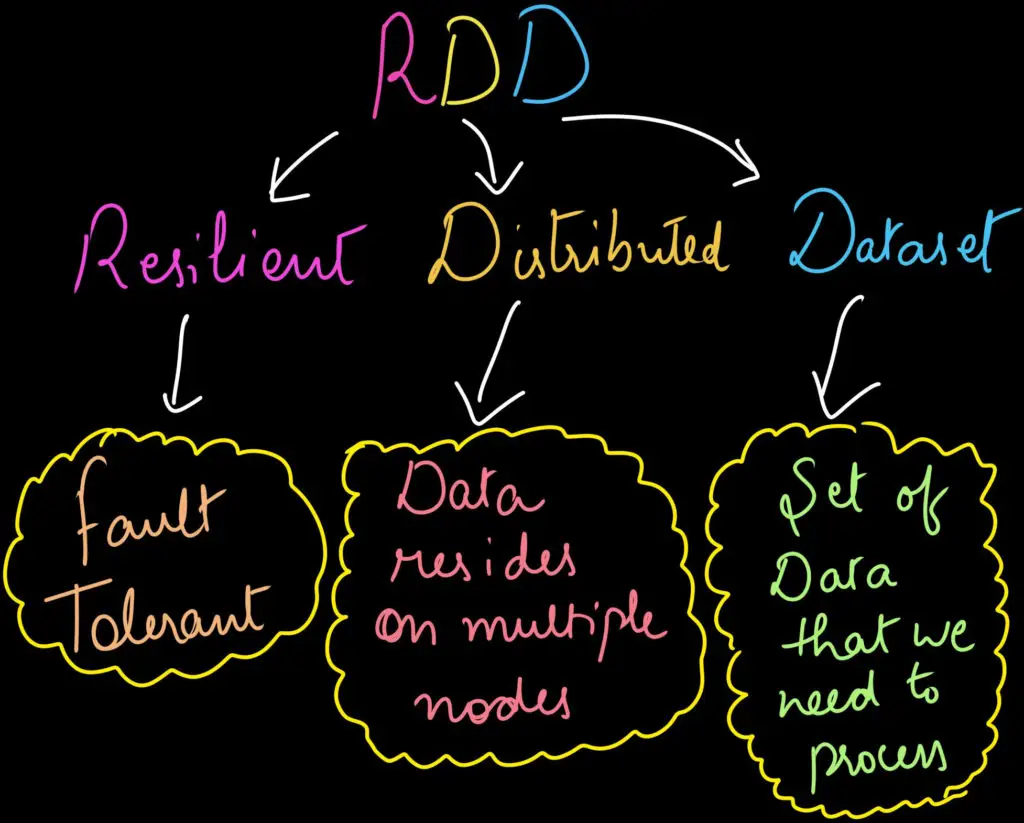 RDD
Resilient Distributed Dataset
Fault
Tolerant
Data
resides
on multiple
nodes
Set of
Data
that we
need to
process